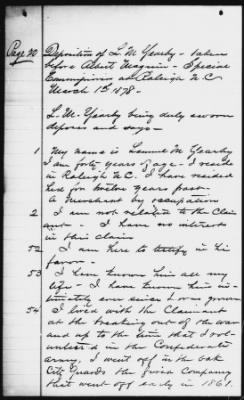 Page 20
Deposition of L. M. Yearby - taken
before Albert Magnin - Special
Commissioner at Raleigh N C
March 1st 1878 -
L. M. Yearby being duly sworn
deposes and says -
1 My name is M Yearby
I am forty years of age - I reside
in Raleigh N.C. I have resided
here for twelve years past -
A merchant by occupation
2 I am not related to the Claim
ant - I have no interest
in this claim
52 I am here to testify in his
favor -
53 I have known him all my
life - I have known him in-
timately ever since I was grown
54 I lived with the Claimant
at the breaking out of the war
and up to the time that I vol-
unteered in the Confederate
army, I went off in the Oak
City Guards the first Company
that went off early in 1861.